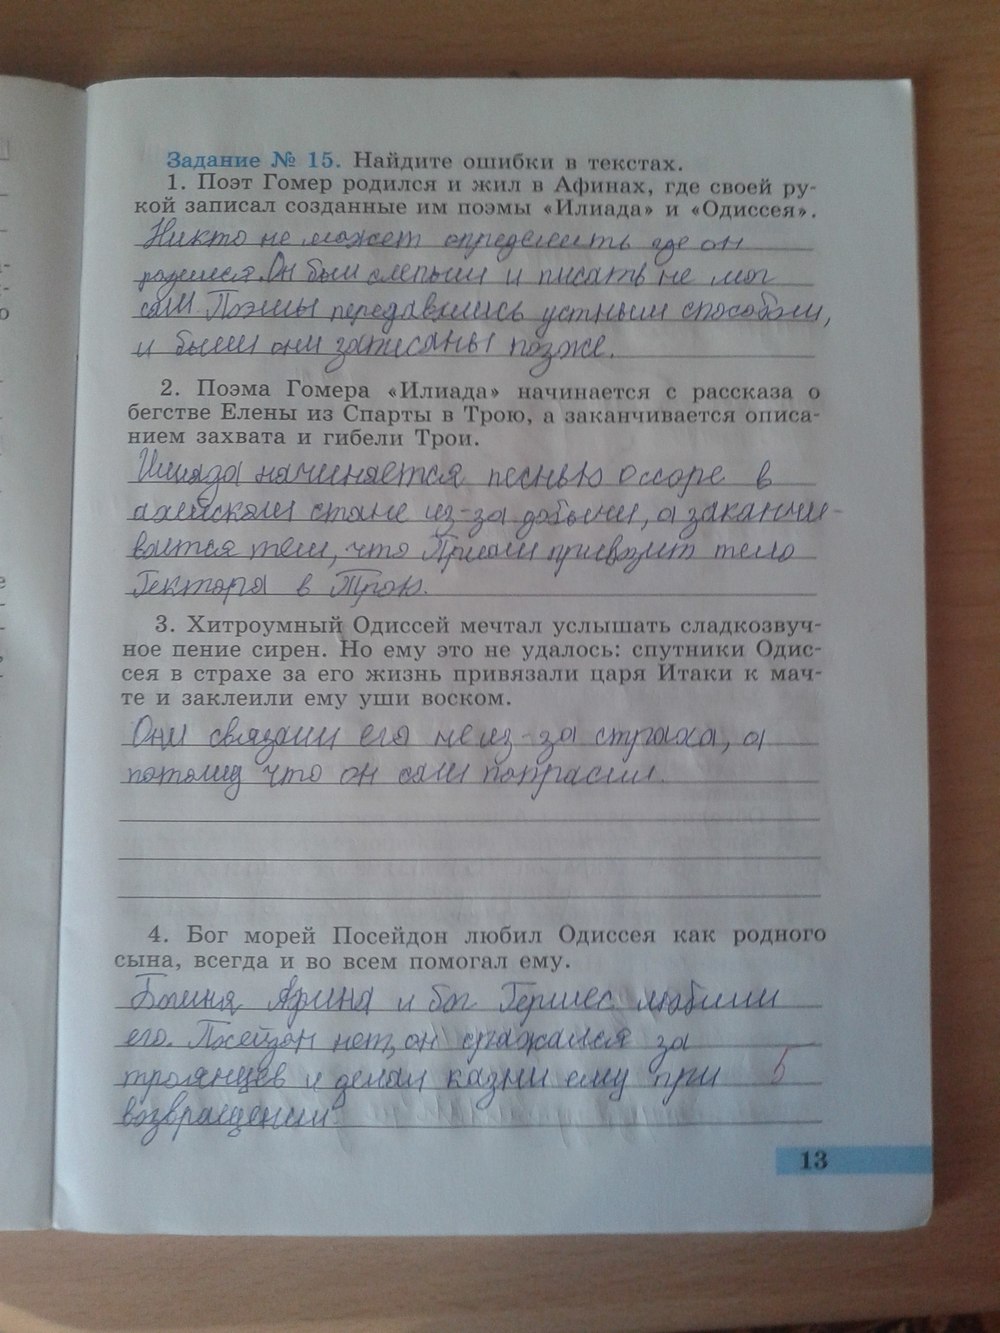 Задание № 15. Найдите ошибки в текстах.
1. Поэт Гомер родился и жил в Афинах, где своей ру-
кой записал созданные им поэмы «Илиада» и «Одиссея».
Никто не может определить где он
родился. Он был слепым и писать не мог
сам. Поэмы передавались устным способом,
и были они записаны позже.
2. Поэма Гомера «Илиада» начинается с рассказа о
бегстве Елены из Спарты в Трою, а заканчивается описа-
нием захвата и гибели Трои.
Илиада начинается песнью о ссоре в
ахейском стане из-за добычи, а заканчи-
вается тем, что Приам привозит тело
Гектора в Трою.
3. Хитроумный Одиссей мечтал услышать сладкозвуч-
ное пение сирен. Но ему это не удалось: спутники Одис-
сея в страхе за его жизнь привязали царя Итаки к мач-
те и заклеили ему уши воском.
Они связали его не из-за страха, а
потому что он сам попрасил.
4. Бог морей Посейдон любил Одиссея как родного
сына, всегда и во всем помогал ему.
Богиня Афина и бог Гермес любили
его. Посейдон нет, он сражался за
троянцев и делал казни ему при 5
возвращении.
13